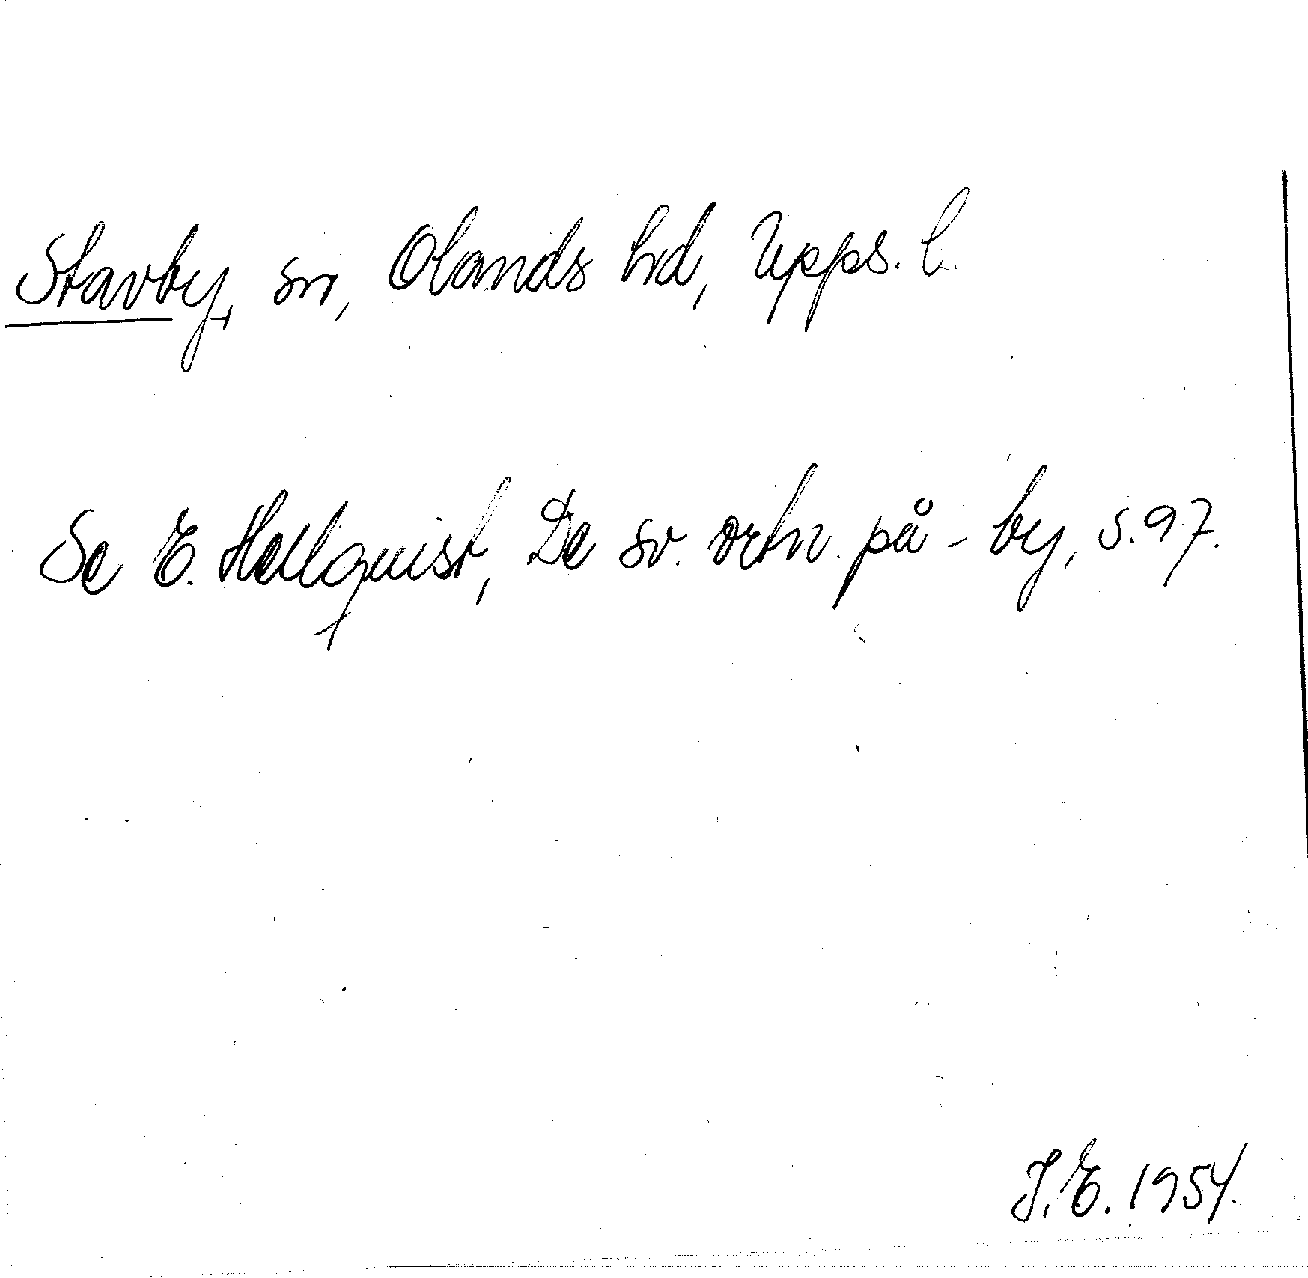 Stavby, sn, Olands hd, Upps. l.
Se E. Hellquist, De sv. ortn. på -by, s. 97.
J. E. 1954.